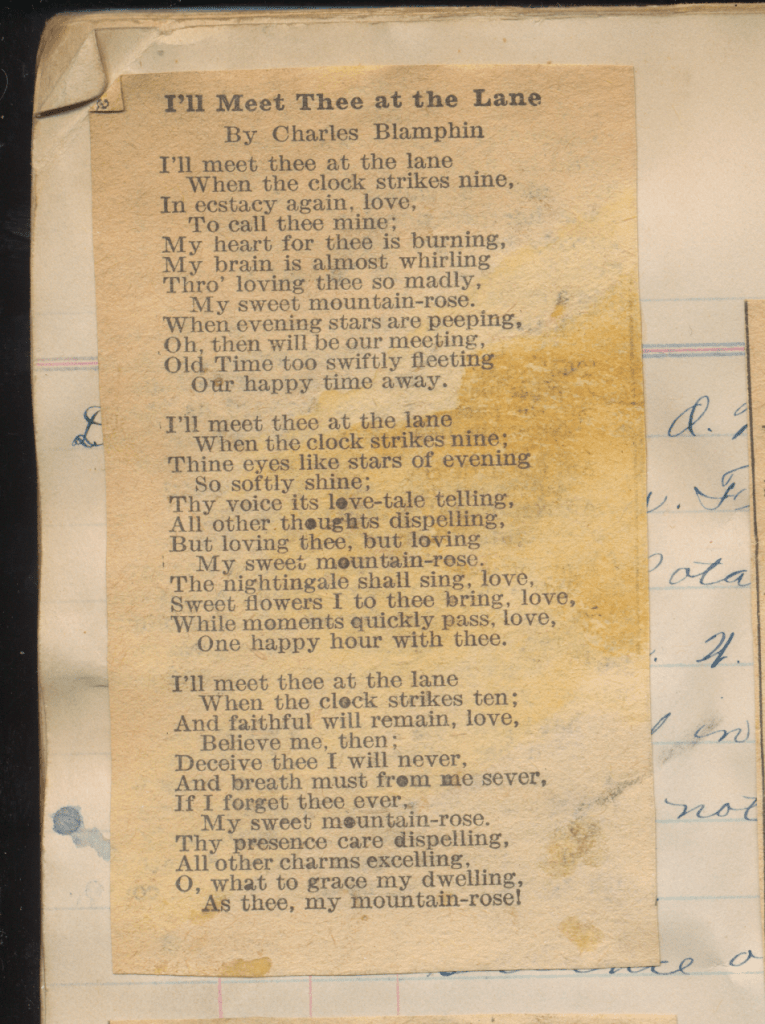 I'll Meet Thee at the Lane
By Charles Blamphin
I'll meet thee at the lane
When the clock strikes nine,
In ecstacy again, love,
To call thee mine;
My heart for thee is burning,
My brain is almost whirling
Thro' loving thee so madly,
My sweet mountain-rose.
When evening stars are peeping,
Oh, then will be our meeting,
Old Time too swiftly fleeting
Our happy time away.
I'll meet thee at the lane
When the clock strikes nine;
Thine eyes like stars of evening
So softly shine;
Thy voice its love-tale telling,
All other thoughts dispelling,
But loving thee, but loving
My sweet mountain-rose.
The nightingale shall sing, love,
Sweet flowers I to thee bring, love,
While moments quickly pass, love,
One happy hour with thee.
I'll meet thee at the lane
When the clock strikes ten;
And faithful will remain, love,
Believe me, then;
Deceive thee I will never,
And breath must from me sever,
If I forget thee ever,
My sweet mountain-rose.
Thy presence care dispelling,
All other charms excelling,
O, what to grace my dwelling,
As thee, my mountain-rose!
not